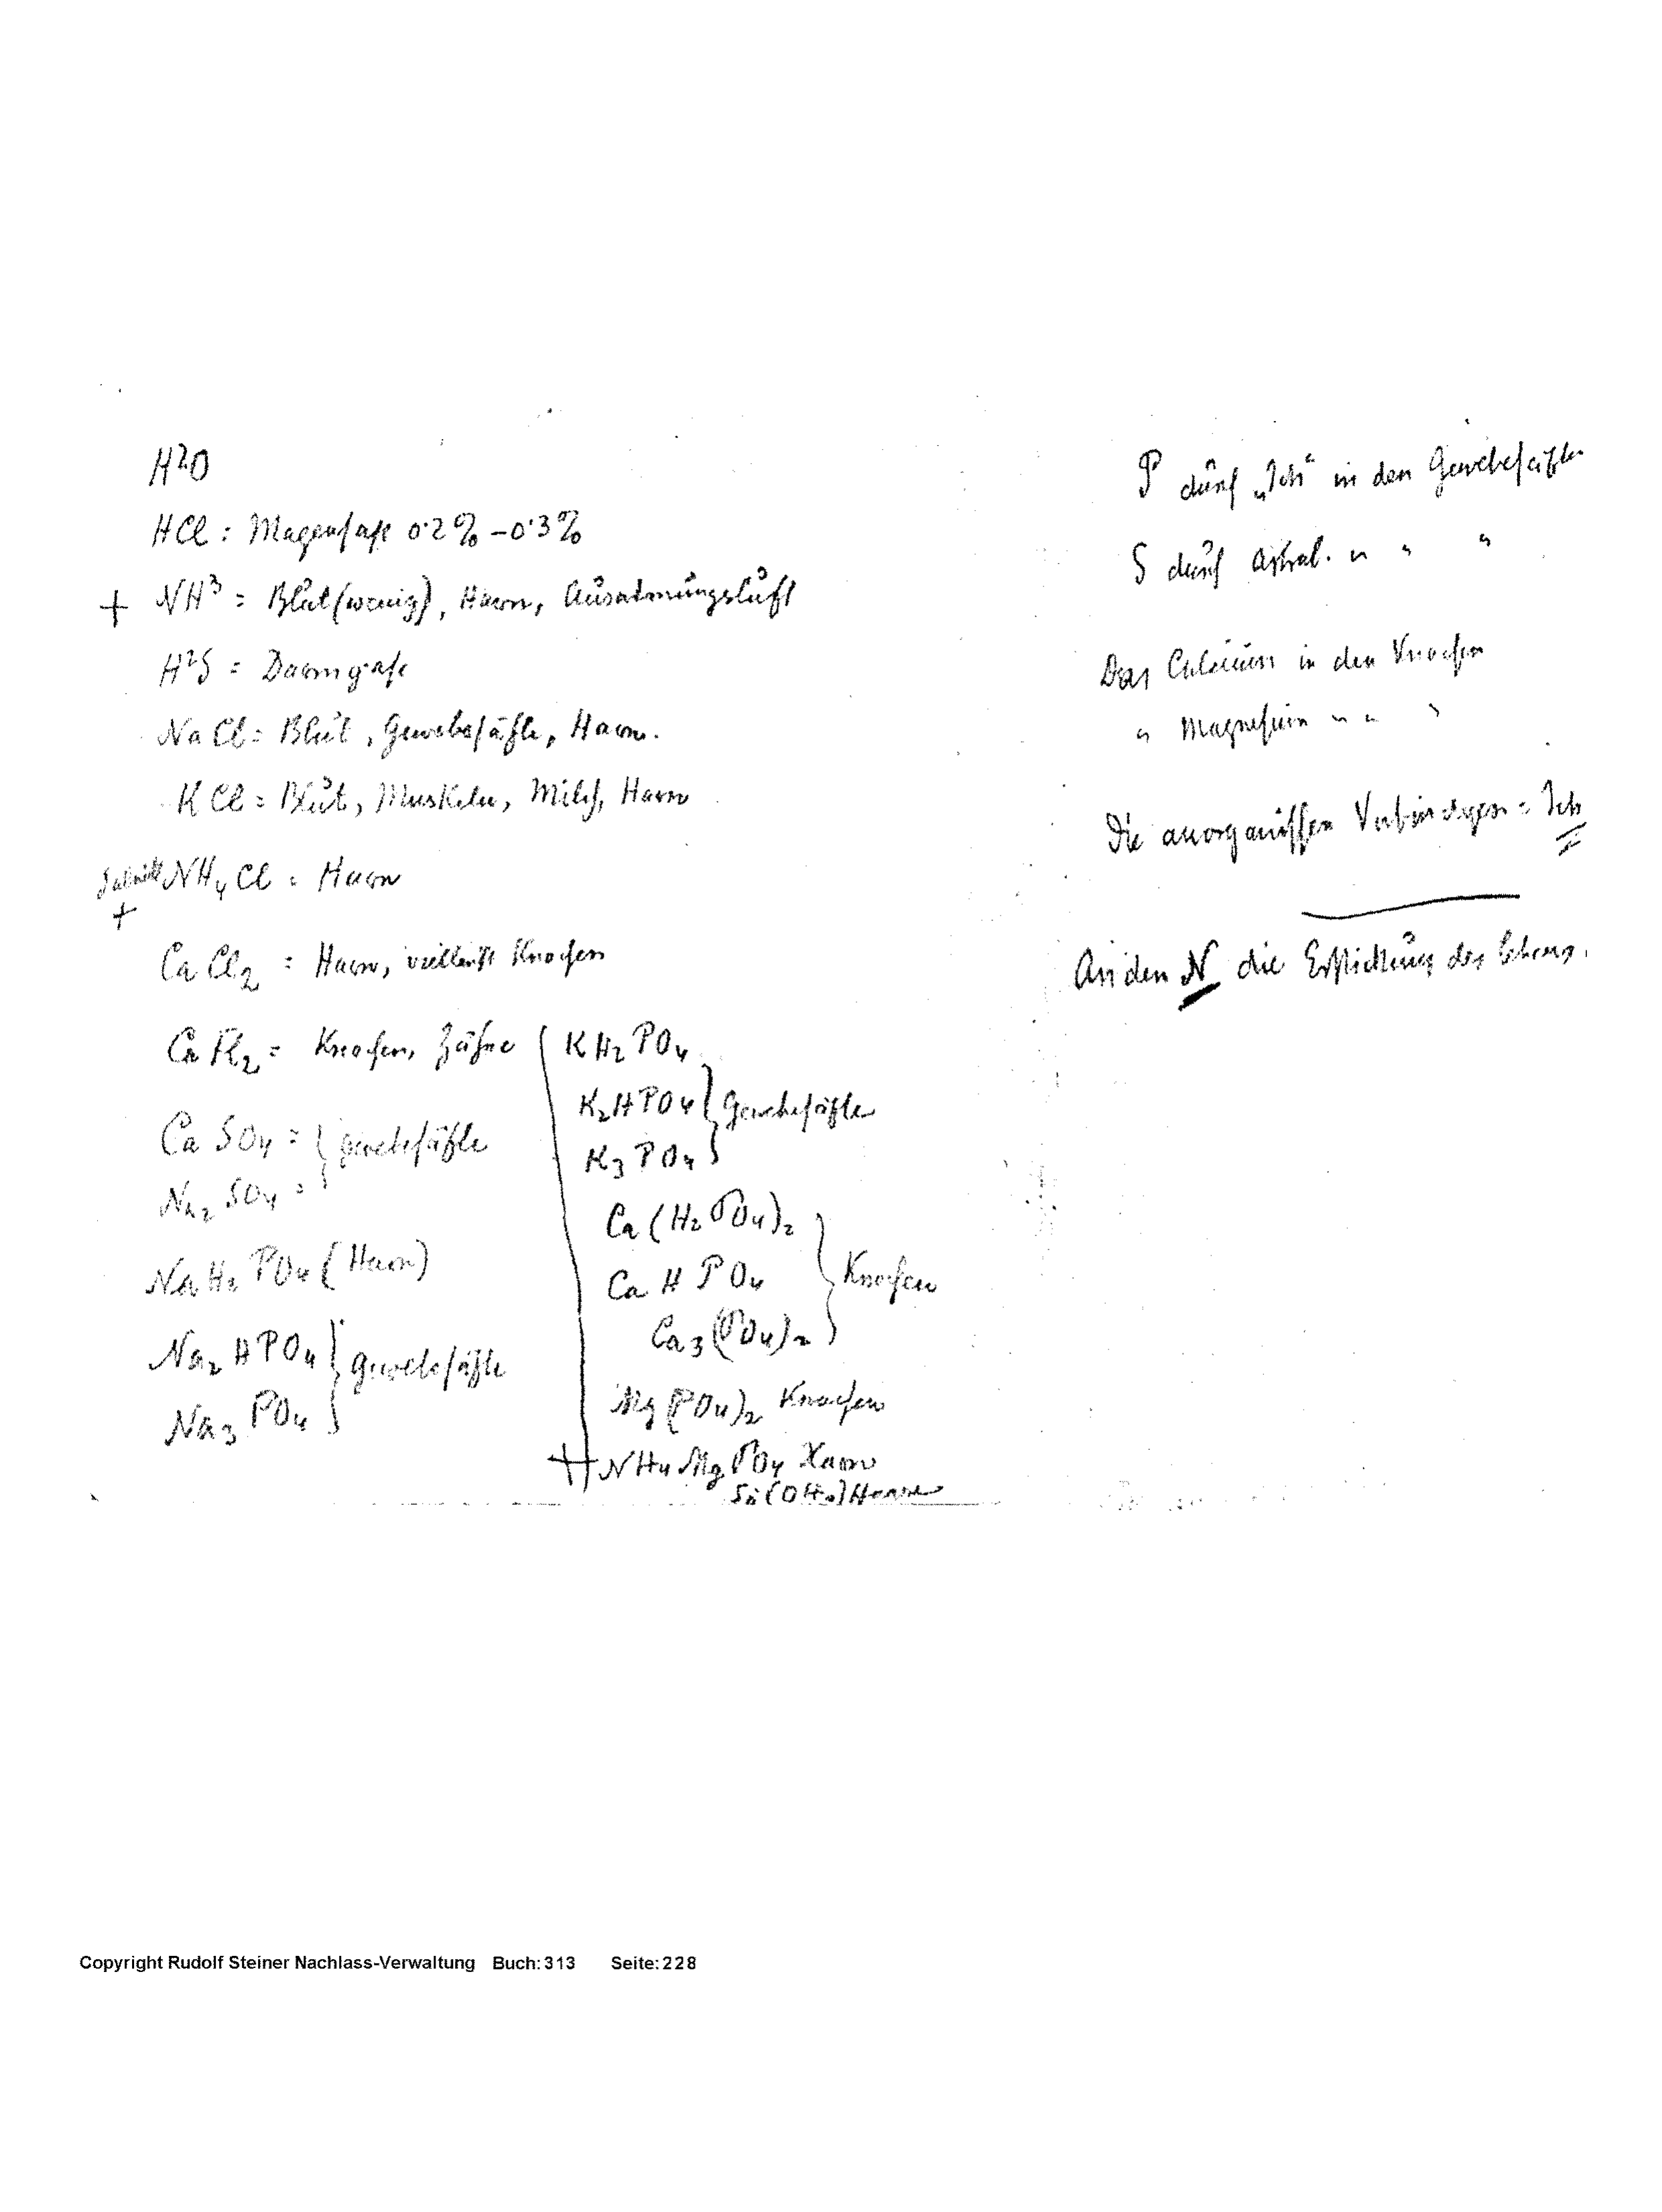 H²O
HCl: Magensaft 0·2% – 0·3%
+ NH³ = Blut (wenig), Harn, Ausatmungsluft
H²S = Darmgase
NaCl = Blut, Gewebesäfte, Harn.
KCl = Blut, Muskeln, Milch, Harn
Salmiak NH₄Cl = Harn
+
CaCl₂ = Harn, vielleicht Knochen
CaFl₂ = Knochen, Zähne
CaSO₄ = } Gewebesäfte
Na₂SO₄ =
NaH₂PO₄ (Harn)
Na₂HPO₄ } Gewebesäfte
Na₃PO₄
KH₂PO₄
K₂HPO₄ } Gewebesäfte
K₃PO₄
Ca(H₂PO₄)₂
CaHPO₄ } Knochen
Ca₃(PO₄)₂
Mg(PO₄)₂ Knochen
+ NH₄MgPO₄ Harn
Si(OH) Haare
P durch „Ich“ in den Gewebesäften
S durch Astral. " " "
Das Calcium in den Knochen
" Magnesium " " "
Die anorganischen Verbindungen = Ich
An den N die des Lebens.
Copyright Rudolf Steiner Nachlass-Verwaltung Buch: 313 Seite: 228